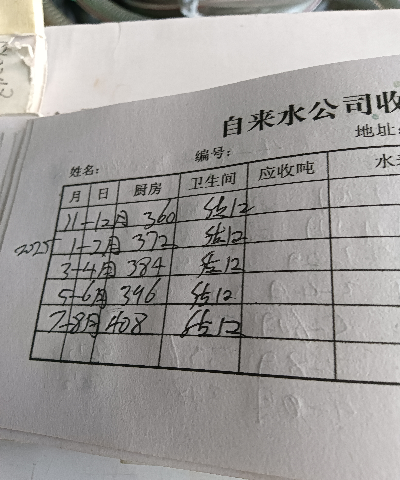 自来水公司收
地址:
姓名: 编号:
月 日 厨房 卫生间 应收吨 水
11-12月 360 估12
2025 1-2月 372 估12
3-4月 384 估12
5-6月 396 估12
7-8月 408 估12